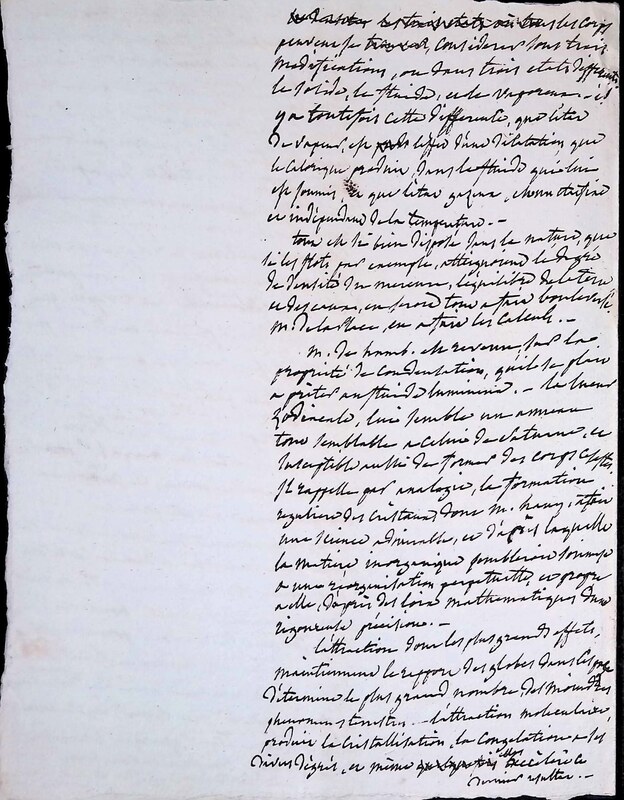 les corps
peuvent se considérer sous trois
modifications, ou dans trois etats differents
le solide, le fluide, et le vaporeux - il
y a toutefois cette difference, que l'etat
de vapeur, est l'effet d'une dilatation que
le calorique produit dans le fluide qui lui
est soumis, et que l'etat gazeux,
et indépendant de la temperature. -
tout est si bien disposé dans la nature, que
si les flots, par exemple, atteignoient le degré
de densité du mercure, l'equilibre de la terre
et des eaux, en seroit tout a fait bouleversé.
M. de la Place, en a fait les calculs. -
M. de humb. est revenu, sur la
propriété de condensation, qu'il se plait
a prêter au fluide lumineux. - la lueur
Zodiacale, lui semble un anneau
tout semblable a celui de Saturne, et
susceptible aussi de former des corps celestes,
Il rappelle par analogie, la formation
reguliere des cristaux, dont M. hauy, a fait
une science admirable, et d'après laquelle
la matiere inorganique sembleroit soumise
a une réorganisation perpetuelle, et propre
a elle, d'après des loix mathematiques d'une
rigoureuse précision. -
l'attraction dont les plus grands effets,
maintiennent le rapport des globes dans l'espace
détermine le plus grand nombre des moindres
phenomenes terrestres. - l'attraction moleculaire,
produit la cristallisation, la congelation a ses
divers degrés, et même
dernier resultat. -